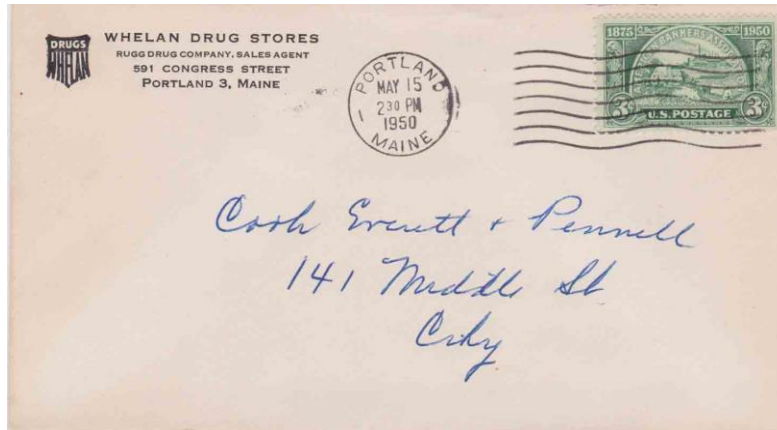 DRUGS
WHELAN
WHELAN DRUG STORES
RUGG DRUG COMPANY, SALES AGENT
591 CONGRESS STREET
PORTLAND 3, MAINE
PORTLAND
MAY 15
2 30 PM
1950
1
MAINE
1875 1950
AMERICAN BANKERS ASSOCIATION
3¢ 3¢
U.S. POSTAGE
Cook Everett + Pennell
141 Middle St
City